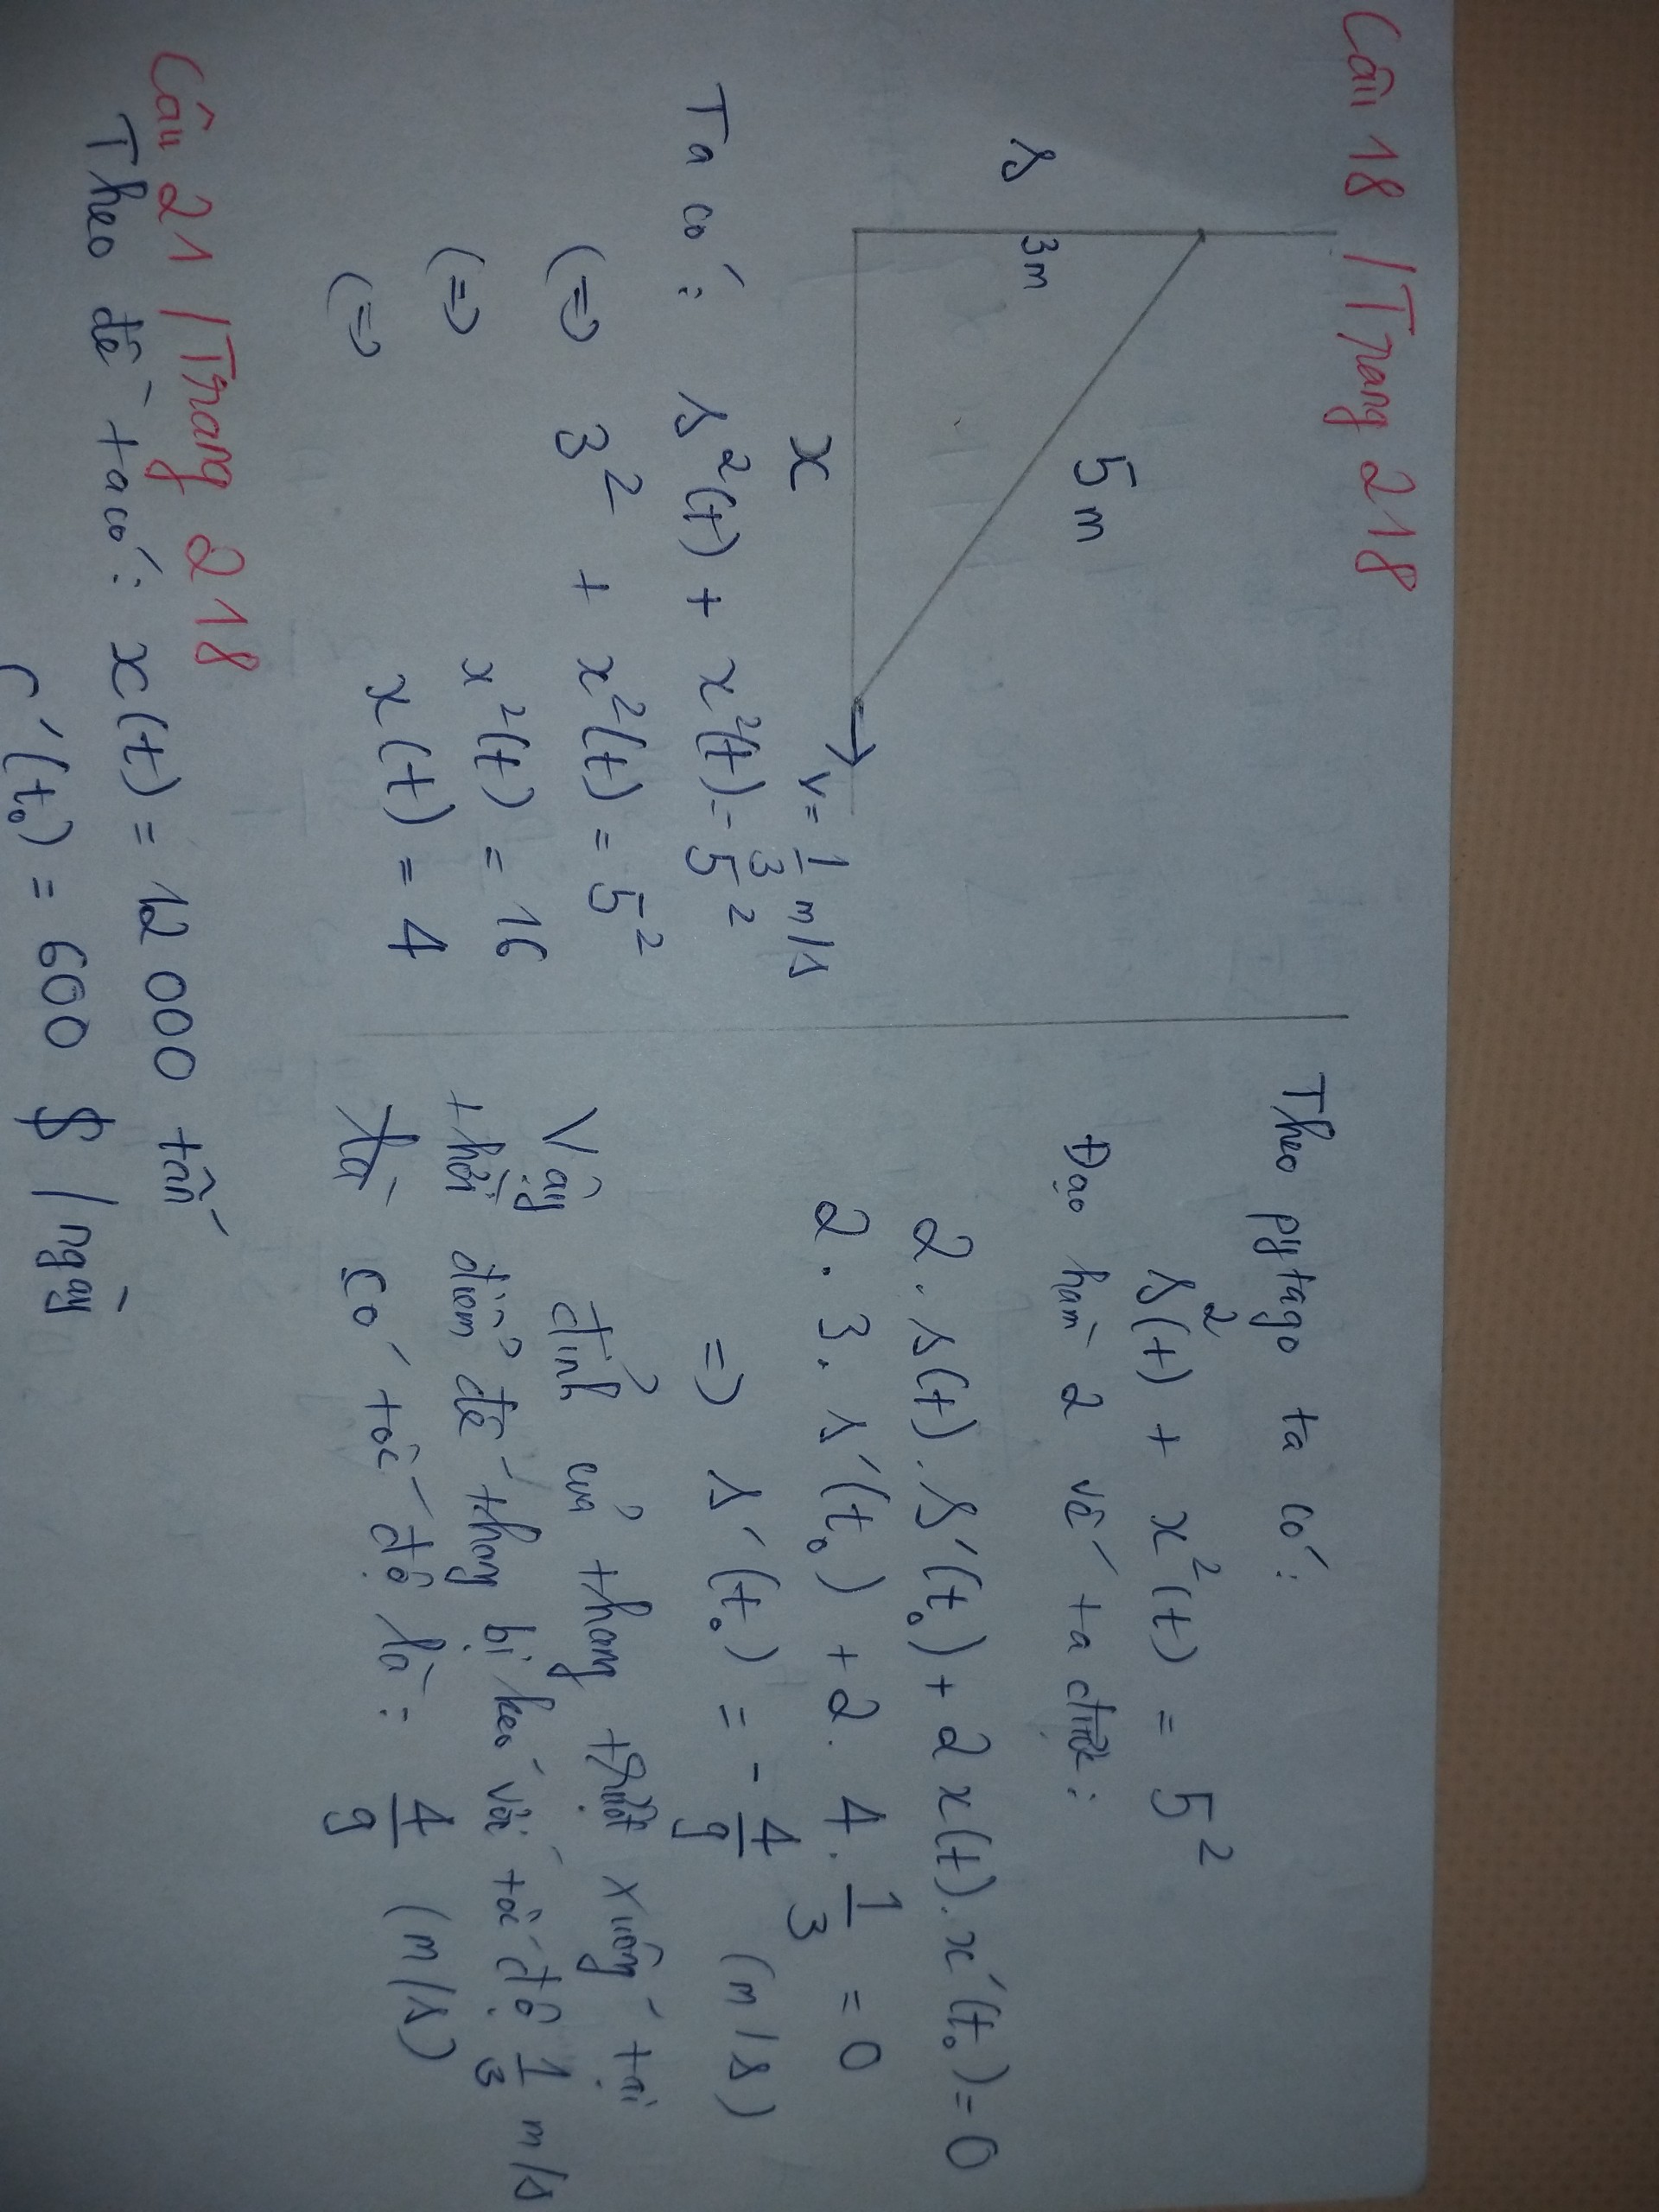 Câu 18 / Trang 218
5 m
s
3m
x
v = 1/3 m/s
Ta có: s²(t) + x²(t) = 5²
(=) 3² + x²(t) = 5²
(=) x²(t) = 16
(=) x(t) = 4
Theo pytago ta có:
s²(t) + x²(t) = 5²
Đạo hàm 2 vế ta được:
2 . s(t) . s'(t₀) + 2 x(t) . x'(t₀) = 0
2 . 3 . s'(t₀) + 2 . 4 . 1/3 = 0
=) s'(t₀) = - 4/9 (m/s)
Vậy đỉnh của thang trượt xuống tại
thời điểm đế thang bị kéo với tốc độ 1/3 m/s
là có tốc độ là: 4/9 (m/s)
Câu 21 / Trang 218
Theo đề ta có: x(t) = 12 000 tấn
C'(t₀) = 600 $ / ngày